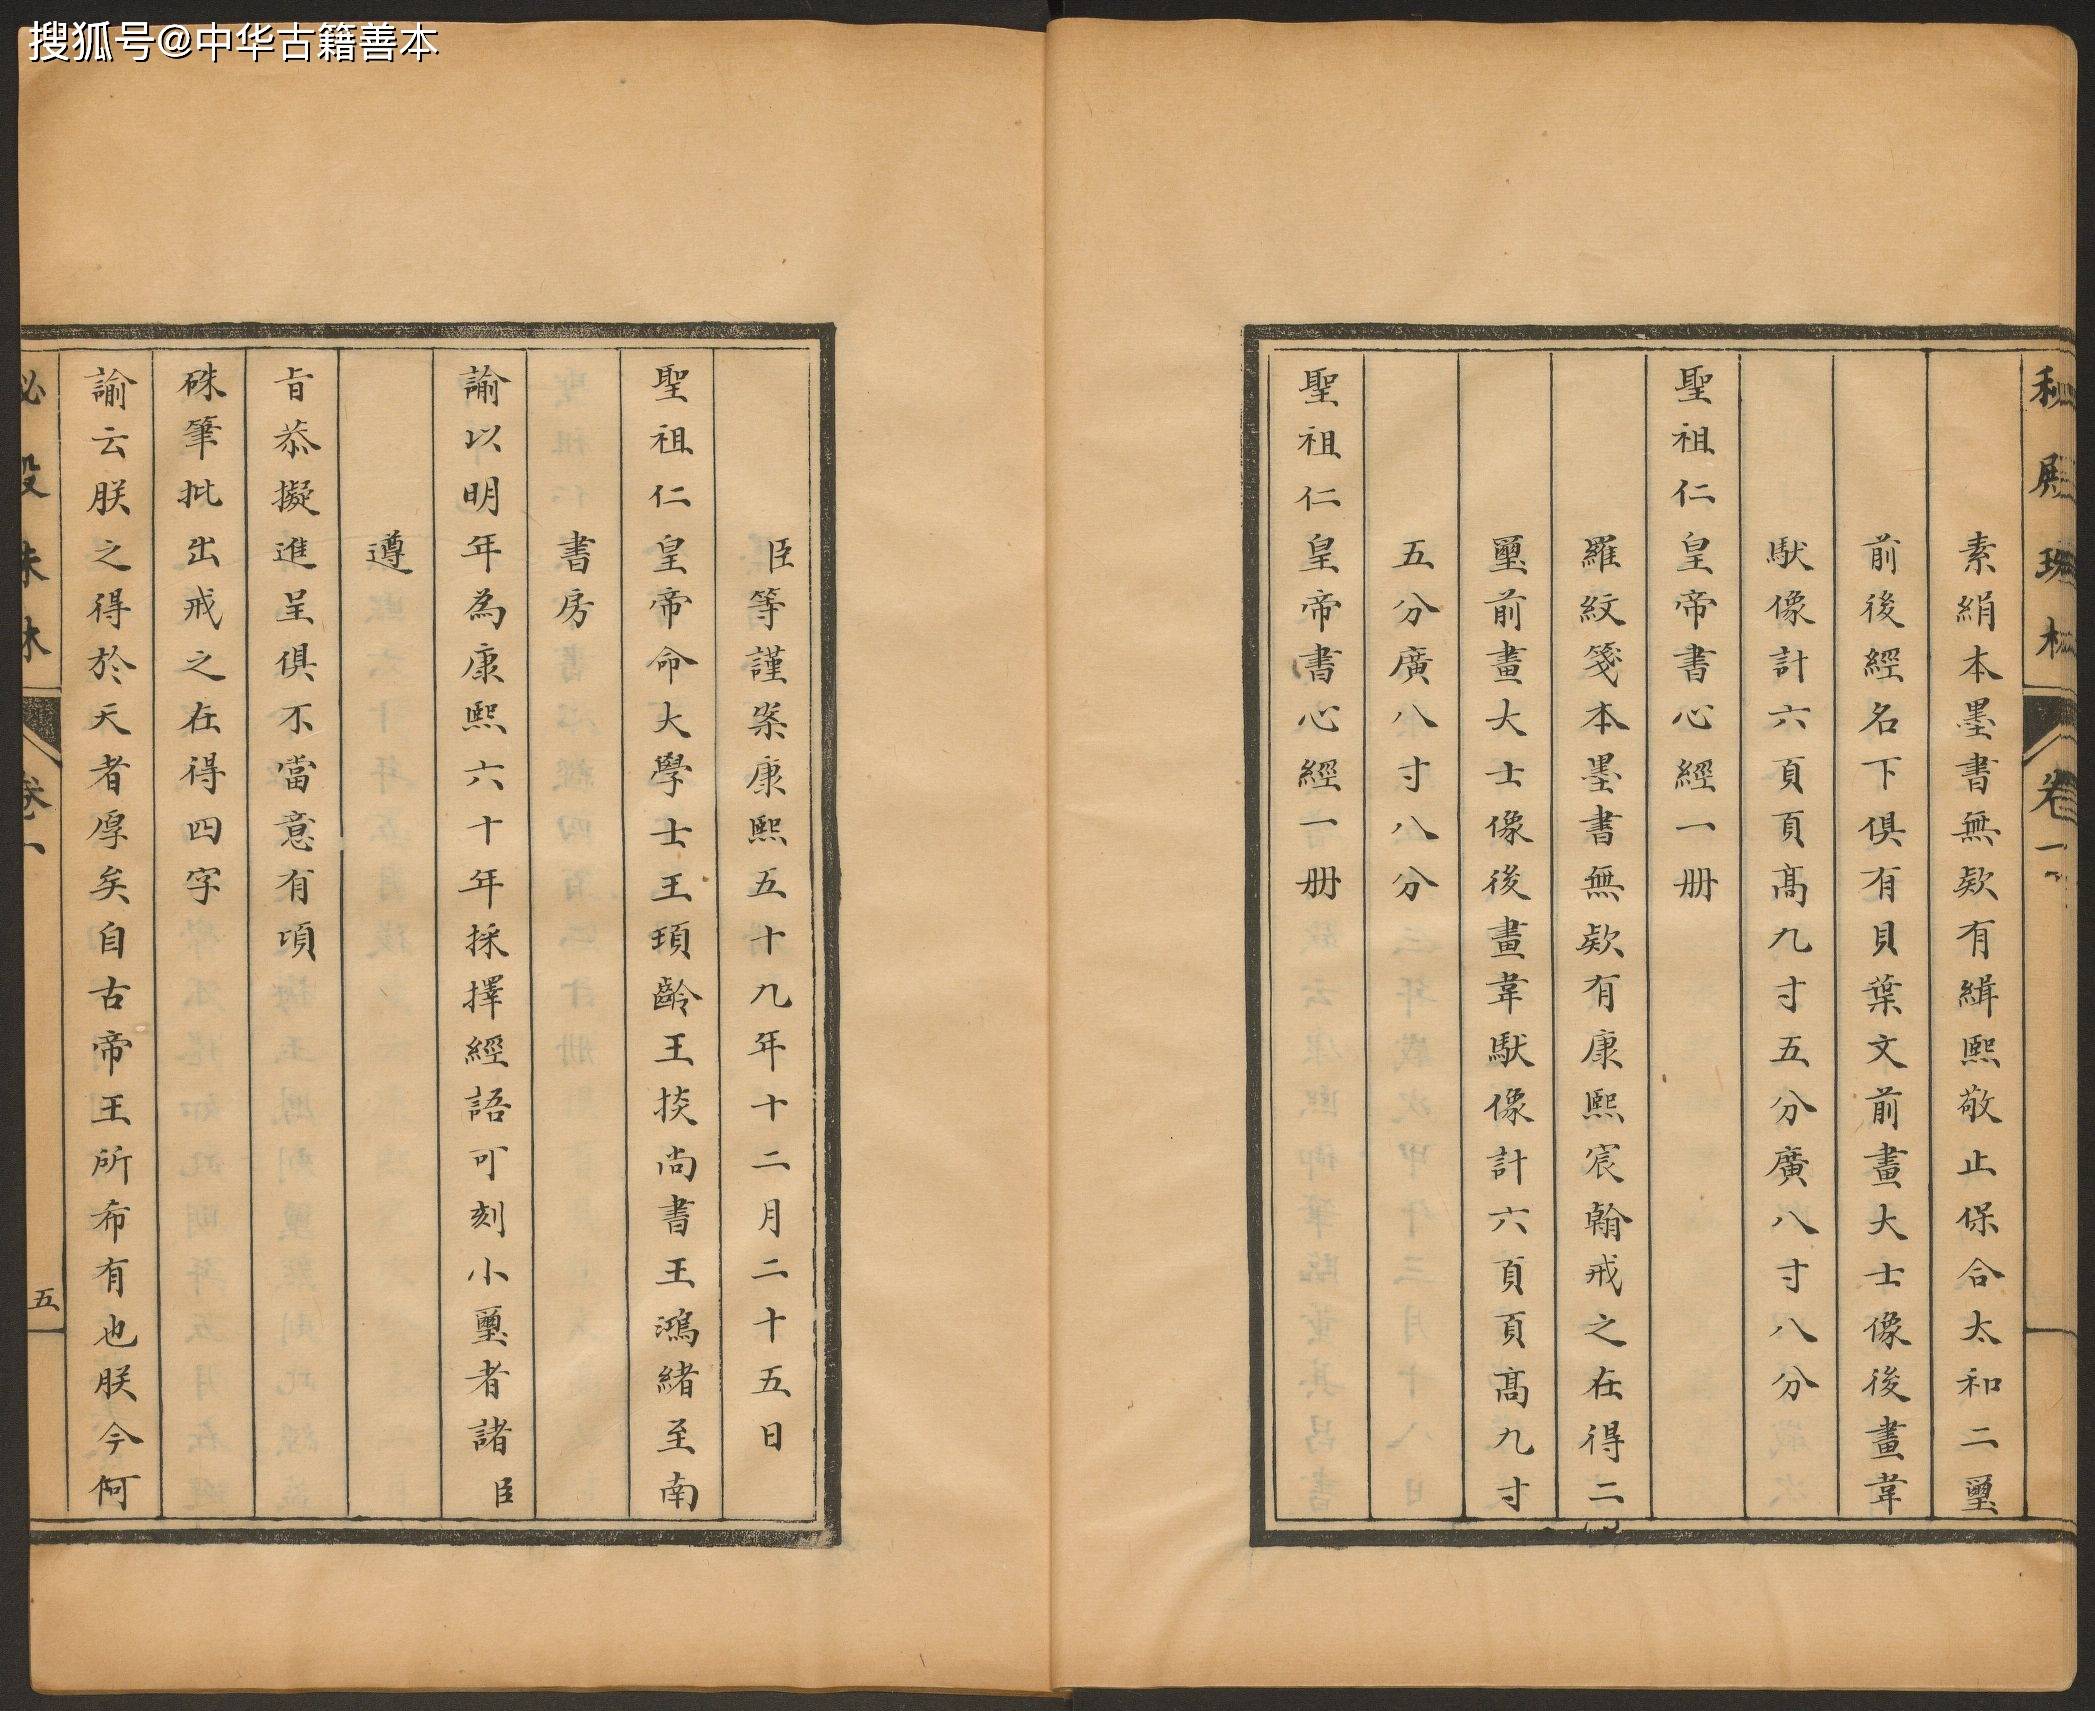 搜狐号@中华古籍善本
卷一
素絹本墨書無欵有緝熙敬止保合太和二璽
前後經名下俱有貝葉文前畫大士像後畫韋
馱像計六頁頁高九寸五分廣八寸八分
聖祖仁皇帝書心經一冊
羅紋箋本墨書無欵有康熙宸翰戒之在得二
璽前畫大士像後畫韋馱像計六頁頁高九寸
五分廣八寸八分
聖祖仁皇帝書心經一冊
臣等謹案康熙五十九年十二月二十五日
聖祖仁皇帝命大學士王頊齡王掞尚書王鴻緒至南
書房
諭以明年為康熙六十年採擇經語可刻小璽者諸臣
遵
旨恭擬進呈俱不當意有項
硃筆批出戒之在得四字
諭云朕之得於天者厚矣自古帝王所希有也朕今何
秘殿珠林
卷一
五